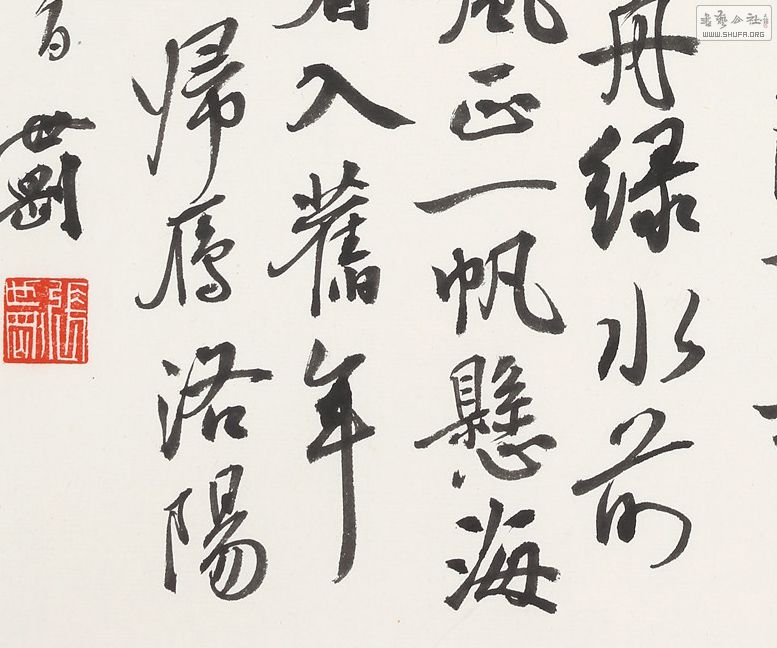 舟綠水前
風正一帆懸海
春入舊年
歸雁洛陽
世剛
張世剛
書藝公社
WWW.SHUFA.ORG